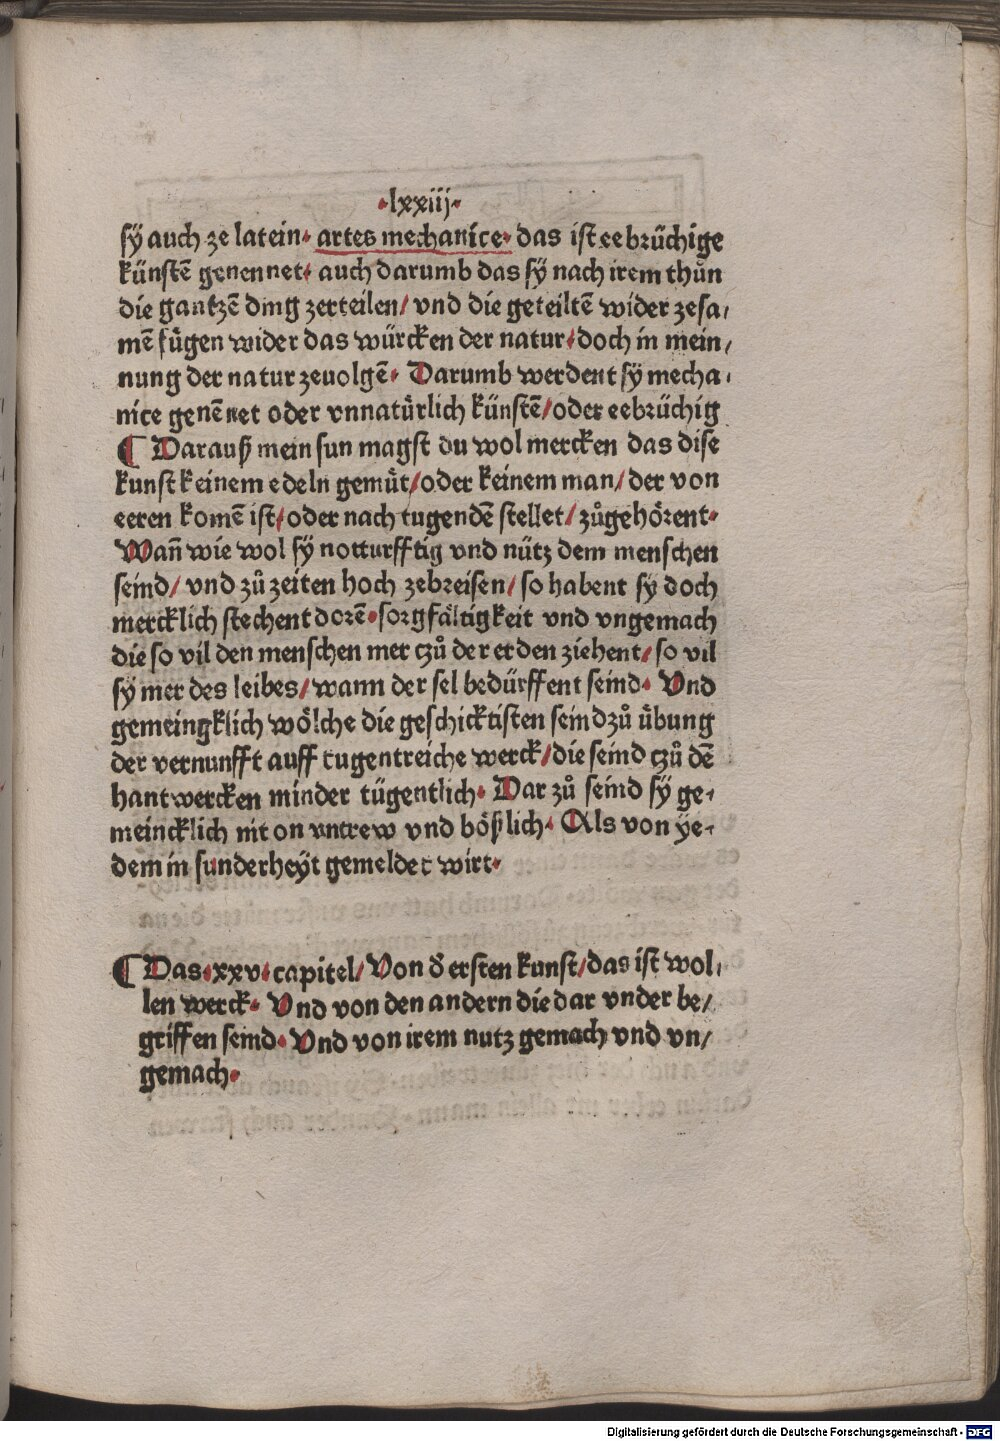 ·lxxiij·
sÿ auch ze latein· artes mechanice· das ist eebrüchige
künstē genennet· auch darumb das sÿ nach irem thůn
die gantzē ding zerteilen/ vnd die geteiltē wider zesa/
mē fügen wider das würcken der natur·doch in mein/
nung der natur zeuolgē· Darumb werdent sÿ mecha/
nice genēnet oder vnnatürlich künstē/oder eebrüchig
¶ Darauß mein sun magst du wol mercken das dise
kunst keinem edeln gemüt/oder keinem man/ der von
eeren komē ist/oder nach tugendē stellet/ zůgehörent·
Wan̄ wie wol sÿ notturfftig vnd nütz dem menschen
seind/ vnd zů zeiten hoch zebreisen/ so habent sÿ doch
mercklich stechent dorē·sorgfältigkeit vnd vngemach
die so vil den menschen mer czů der erden ziehent/ so vil
sÿ mer des leibes/wann der sel bedürffent seind· Vnd
gemeingklich wölche die geschicktisten seind zů übung
der vernunfft auff tugentreiche werck/die seind czů dē
hantwercken minder tügentlich· Dar zů seind sÿ ge/
meincklich nit on vntrew vnd bößlich· Als von ye/
dem in sunderheÿt gemeldet wirt·
¶ Das·xxv·capitel/ Von d̕ ersten kunst/das ist wol/
len werck· Vnd von den andern die dar vnder be/
griffen seind·Vnd von irem nutz gemach vnd vn/
gemach·
Digitalisierung gefördert durch die Deutsche Forschungsgemeinschaft - DFG